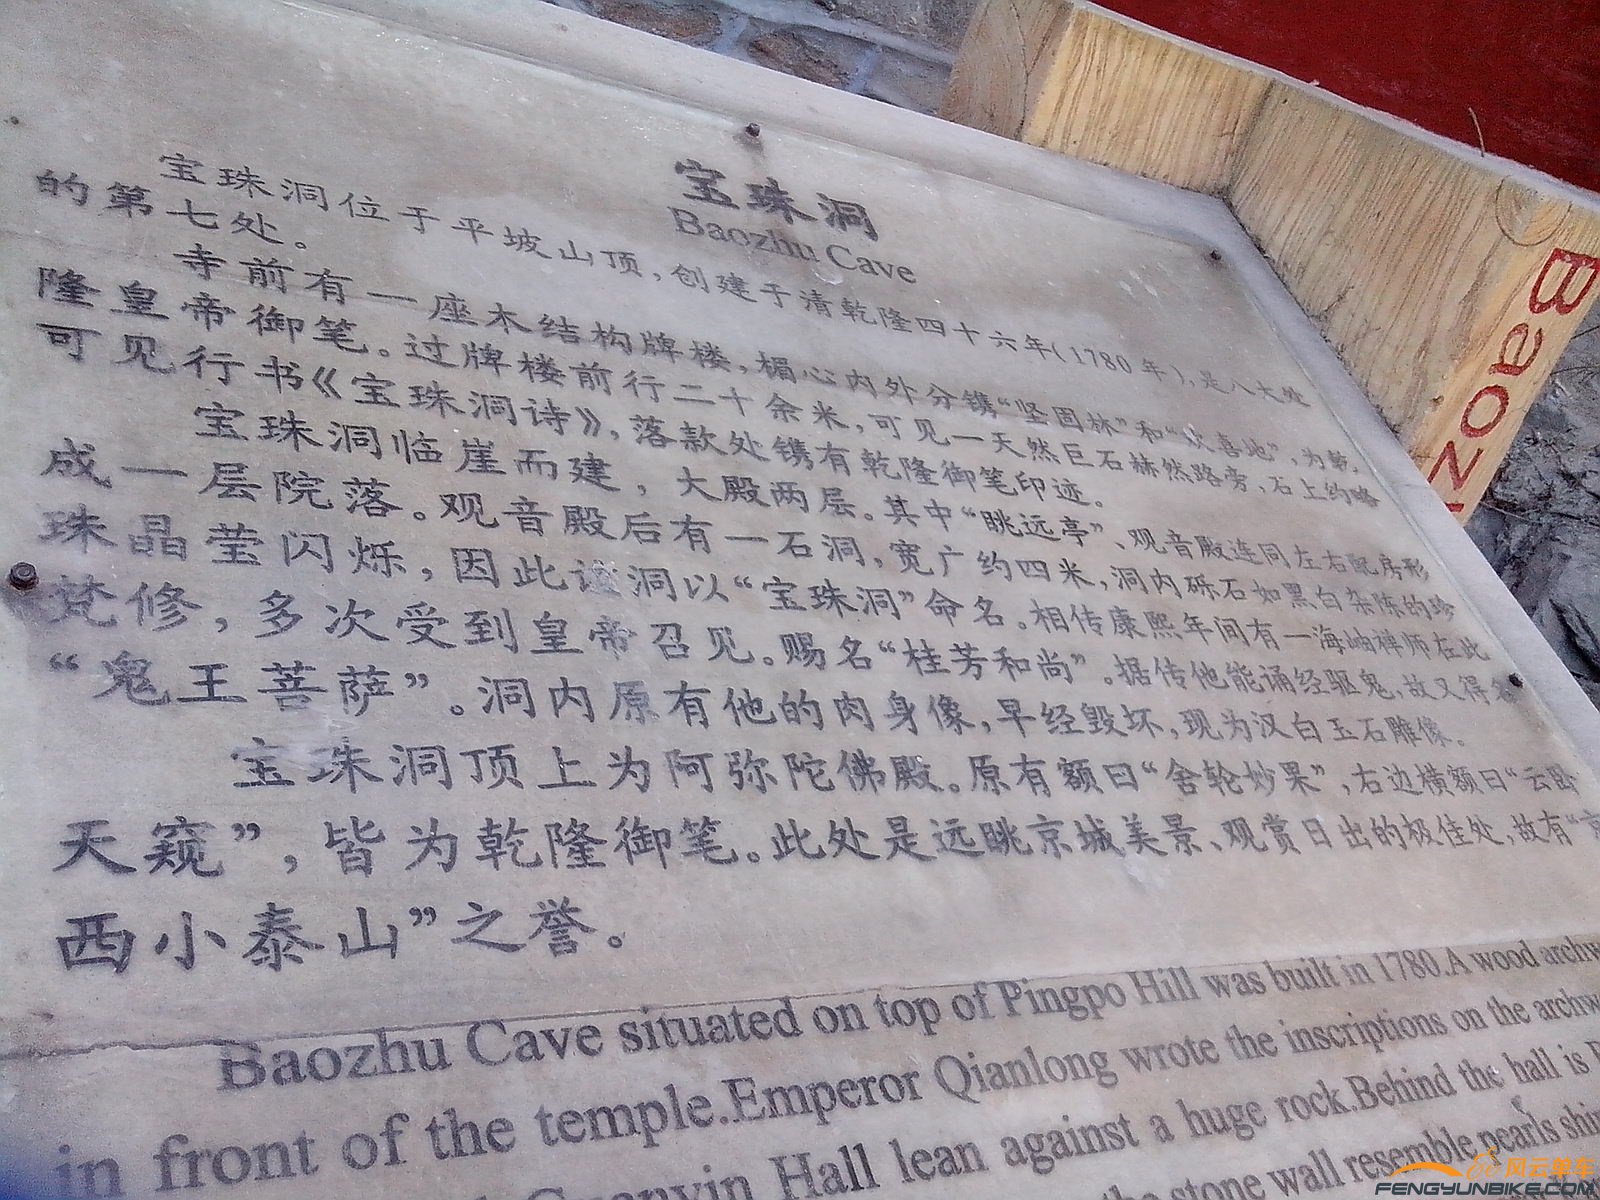 宝珠洞
Baozhu Cave
宝珠洞位于平坡山顶，创建于清乾隆四十六年(1780年)，是八大处
的第七处。
寺前有一座木结构牌楼，楣心内外分镌“坚固林”和“欢喜地”，为乾
隆皇帝御笔。过牌楼前行二十余米，可见一天然巨石赫然路旁、石上约略
可见行书《宝珠洞诗》，落款处镌有乾隆御笔印迹。
宝珠洞临崖而建，大殿两层。其中“眺远亭”、观音殿连同左右配房形
成一层院落。观音殿后有一石洞，宽广约四米，洞内砾石如黑白杂陈的珍
珠晶莹闪烁，因此该洞以“宝珠洞”命名。相传康熙年间有一海岫禅师在此
梵修，多次受到皇帝召见。赐名“桂芳和尚”。据传他能诵经驱鬼，故又得名
“鬼王菩萨”。洞内原有他的肉身像，早经毁坏，现为汉白玉石雕像。
宝珠洞顶上为阿弥陀佛殿。原有额曰“舍轮妙果”，右边横额曰“云卧
天窥”，皆为乾隆御笔。此处是远眺京城美景、观赏日出的极佳处，故有“京
西小泰山”之誉。
Baozhu Cave situated on top of Pingpo Hill was built in 1780.A wood archw
in front of the temple.Emperor Qianlong wrote the inscriptions on the archw
Guanyin Hall lean against a huge rock.Behind the hall is
the stone wall resemble pearls shin
Baoz
风云单车
FENGYUNBIKE.COM